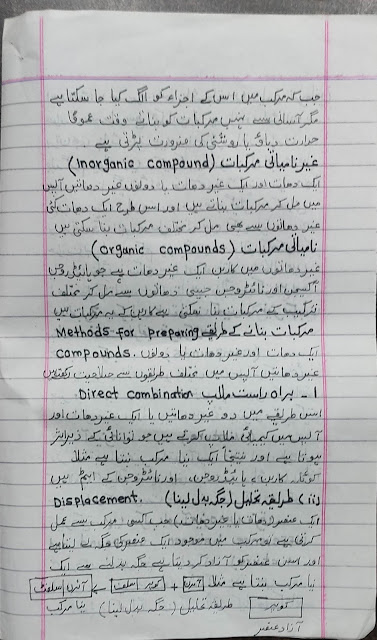 جب کہ مرکب میں اس کے اجزاء کو الگ کیا جا سکتا ہے
مگر آسانی سے نہیں مرکبات کو بناتے وقت عموماً
حرارت دباؤ یا روشنی کی ضرورت پڑتی ہے
غیر نامیاتی مرکبات (Inorganic compound)
ایک دھات اور ایک غیر دھات یا دونوں غیر دھاتیں آپس
میں مل کر مرکبات بناتے ہیں اور اس طرح ایک دھات کئی
غیر دھاتوں سے بھی مل کر مختلف مرکبات بنا سکتی ہیں
نامیاتی مرکبات (organic compounds)
غیر دھاتوں میں کاربن ایک غیر دھات ہے جو ہائیڈروجن
آکسیجن اور نائٹروجن جیسی دھاتوں سے مل کر مختلف
ترکیب کے مرکبات بنا سکتی ہے کاربن کے یہ مرکبات ہیں
مرکبات بنانے کے طریقے Methods for preparing
compounds. ایک دھات اور غیر دھات یا دونوں
غیر دھاتیں آپس میں مختلف طریقوں سے صلاحیت رکھتے ہیں
1- براہ راست ملاپ Direct combination
اس طریقے میں دو غیر دھاتیں یا ایک غیر دھات اور
آپس میں کیمیائی ملاپ کرتے ہیں جو توانائی کے زیر اثر
ہوتا ہے اور نتیجتاً ایک نیا مرکب بنتا ہے مثلاً
کوئلہ کاربن، ہائیڈروجن، اور نائٹروجن کے ایٹم ہیں
(ii) طریقہ تحلیل (جگہ بدل لینا) Displacement.
ایک عنصر (دھات یا غیر دھات) جب کسی مرکب سے عمل
کرتی ہے تو مرکب میں موجود ایک عنصر کی جگہ لے لیتا ہے
اور اس عنصر کو آزاد کر دیتا ہے جگہ بدلنے سے ایک
نیا مرکب بنتا ہے مثلاً آئرن + کوپر سلفیٹ ← آئرن سلفیٹ
کوپر طریقہ تحلیل (جگہ بدل لینا) نیا مرکب
آزاد عنصر